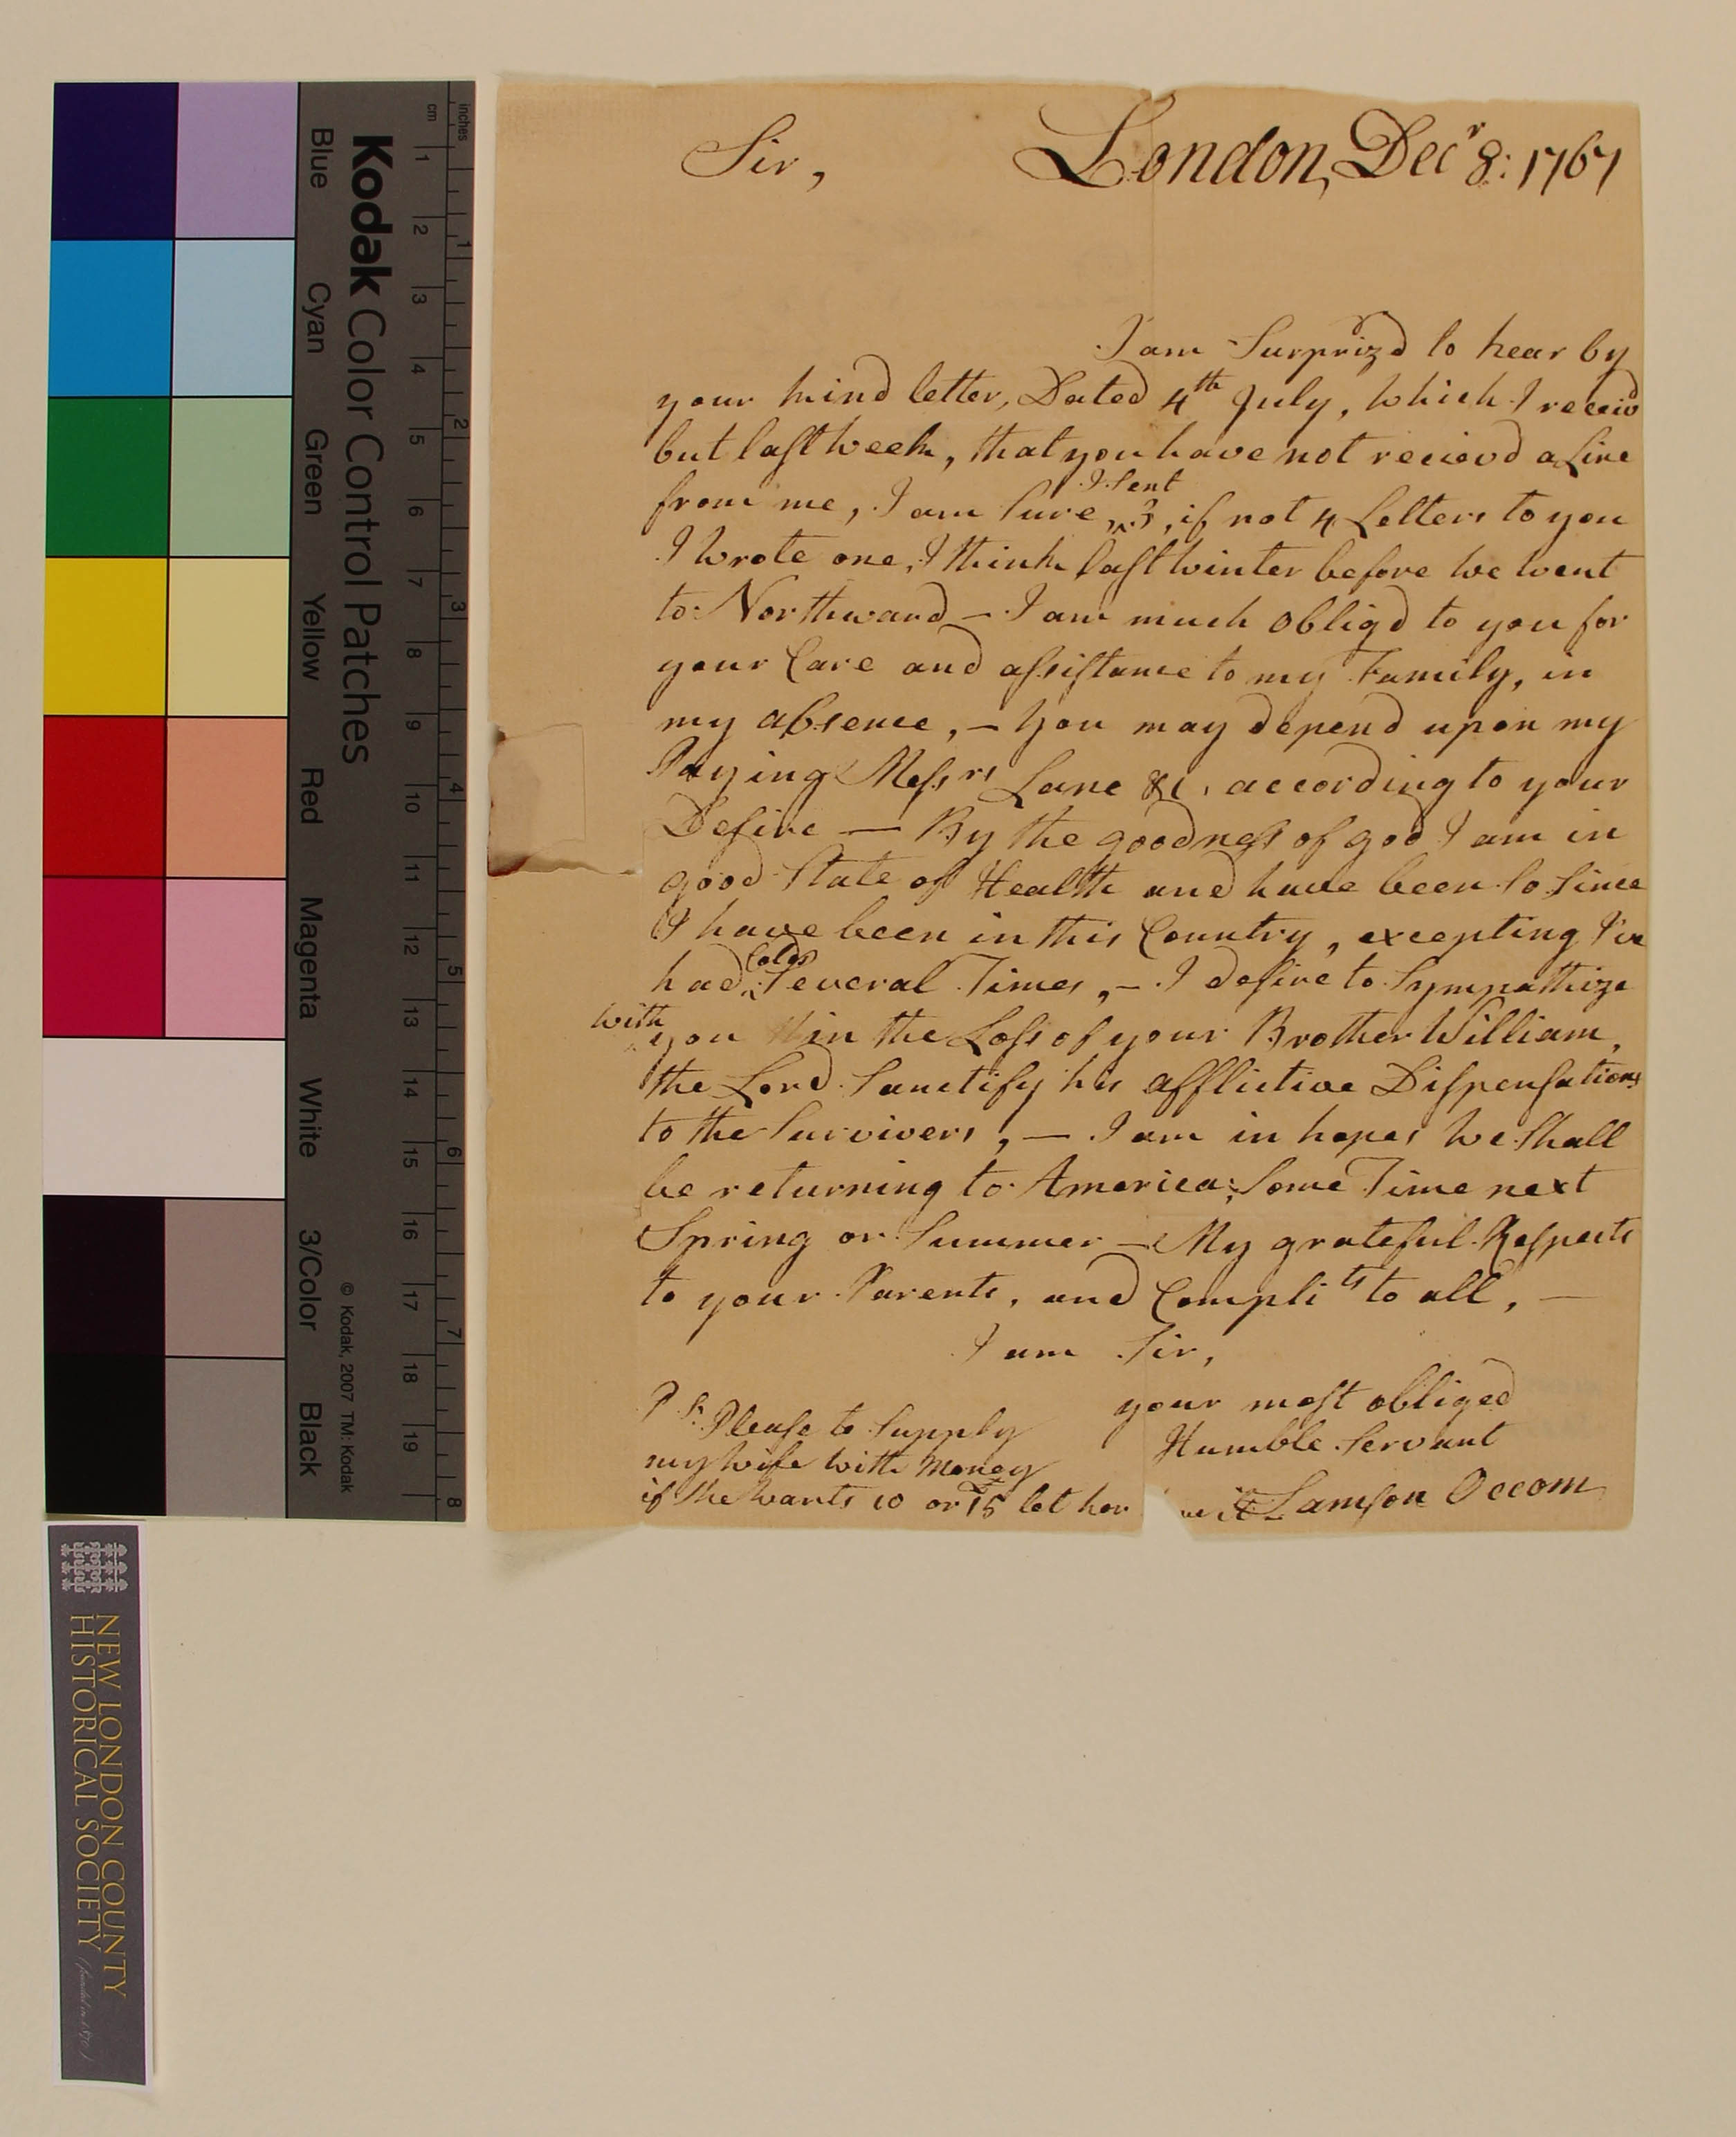 Sir,
London, Decr 8: 1767
I am Surprizd to hear by
your kind letter, Dated 4th July, which I receivd
but last week, that you have not recievd a Line
I Sent
from me, I am Sure ^ 3, if not 4 Letters to you
I wrote one, I think last winter before we went
to Northward — I am much obligd to you for
your Care and assistance to my Family, in
my absence, — You may depend upon my
Paying Messrs Lane &c, according to your
Desire — By the goodness of god I am in
good State of Health and have been so Since
I have been in this Country, excepting I've
Colds
had ^ Several Times, — I desire to Sympathize
with
^ you in the Loss of your Brother William,
the Lord Sanctify his afflictive Dispensations
to the Survivers, — I am in hopes we Shall
be returning to America; Some Time next
Spring or Summer — My grateful Respects
to your Parents, and Complits to all, —
I am Sir,
your most obliged
Humble Servant
Samson Occom
P.S. Please to Supply
my wife with Money
if She wants 10 or £15 let her
it
Kodak Color Control Patches
Blue Cyan Green Yellow Red Magenta White 3/Color Black
inches 1 2 3 4 5 6 7 8
cm 1 2 3 4 5 6 7 8 9 10 11 12 13 14 15 16 17 18 19
© Kodak, 2007 TM: Kodak
NEW LONDON COUNTY
HISTORICAL SOCIETY (founded in 1870)